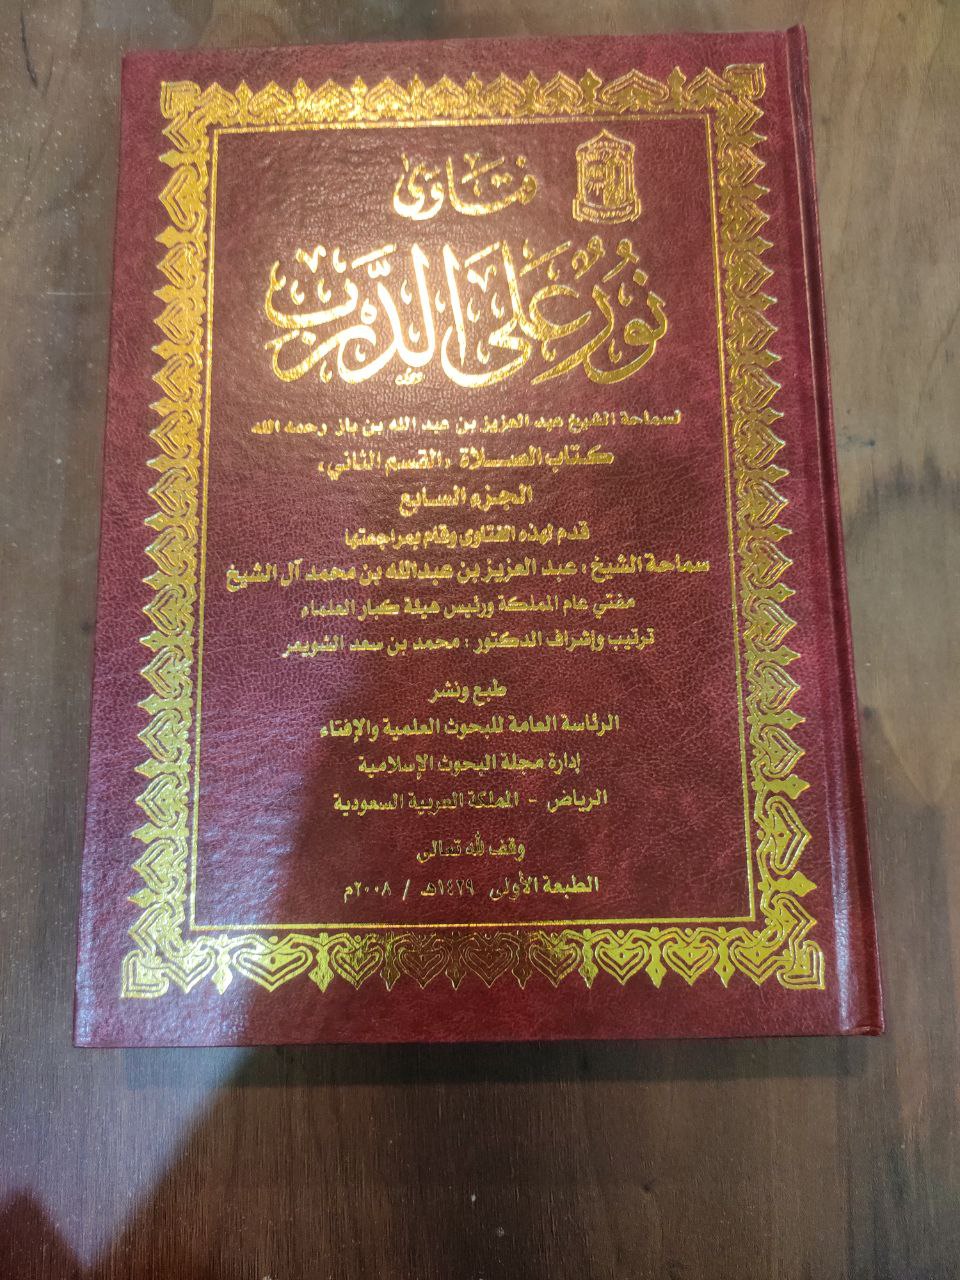 فتاوى
نُورٌ عَلَى الدَّرْبِ
لسماحة الشيخ عبد العزيز بن عبد الله بن باز رحمه الله
كتاب الصلاة «القسم الثاني»
الجزء السابع
قدم لهذه الفتاوى وقام بمراجعتها
سماحة الشيخ : عبد العزيز بن عبدالله بن محمد آل الشيخ
مفتي عام المملكة ورئيس هيئة كبار العلماء
ترتيب وإشراف الدكتور : محمد بن سعد الشويعر
طبع ونشر
الرئاسة العامة للبحوث العلمية والإفتاء
إدارة مجلة البحوث الإسلامية
الرياض - المملكة العربية السعودية
وقف لله تعالى
الطبعة الأولى ١٤٢٩هـ / ٢٠٠٨م